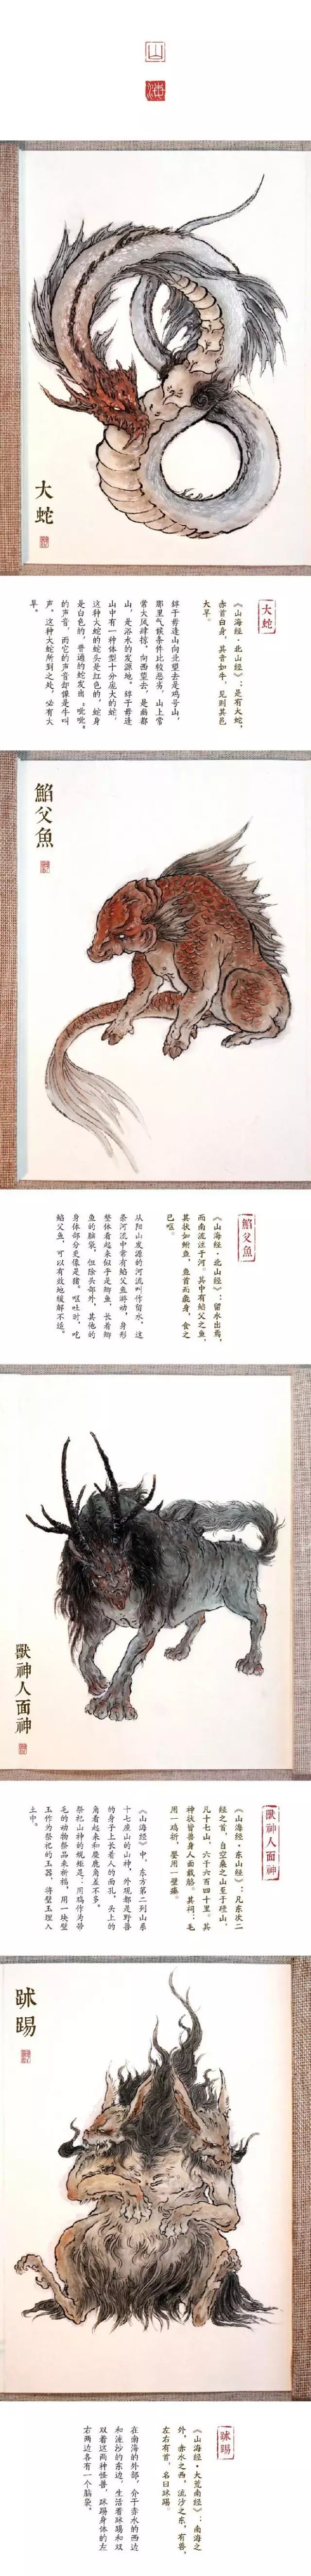 山
海
大蛇
大蛇
《山海经·北山经》：是有大蛇，
赤首白身，其音如牛，见则其邑
大旱。
錞于毋逢山向北望去是鸡号山，
那里气候条件比较恶劣，山上常
常大风肆掠。向西望去，是幽都
山，是浴水的发源地。錞于毋逢
山中有一种体型十分庞大的蛇，
这种大蛇的蛇头是红色的，蛇身
是白色的，普通的蛇发出"呲呲"
的声音，而它的声音却像是牛叫
声。这种大蛇所到之处，必有大
旱。
鮨父魚
鮨父魚
《山海经·北山经》：留水出焉，
而南流注于河。其中有鮨父之鱼，
其状如鲋鱼，鱼首而彘身，食之
已呕。
从阳山发源的河流叫作留水，这
条河流中常有鮨父鱼游动，身形
整体看起来似乎是鲫鱼，长着鲫
鱼的脑袋，但除头部外，其他的
身体部分更像是猪。呕吐时，吃
鮨父鱼，可以有效地缓解不适。
獸神人面神
獸神人面神
《山海经·东山经》：凡东次二
经之首，自空桑之山至于䃌山，
凡十七山，六千六百四十里。其
神状皆兽身人面载觡。其祠：毛
用一鸡祈，婴用一璧瘗。
《山海经》中，东方第二列山系
十七座山的山神，外观都是野兽
的身子上长着人的面孔，头上的
角看起来和麋鹿角差不多。
祭祀山神的规矩是：用鸡作为带
毛的动物祭品来祈福，用一块璧
玉作为祭祀的玉器，将璧玉埋入
土中。
跊踢
跊踢
《山海经·大荒南经》：南海之
外，赤水之西，流沙之东，有兽，
左右有首，名曰跊踢。
在南海的外部，介于赤水的西边
和流沙的东边，生活着跊踢和双
双着这两种怪兽，跊踢身体的左
右两边各有一个脑袋。